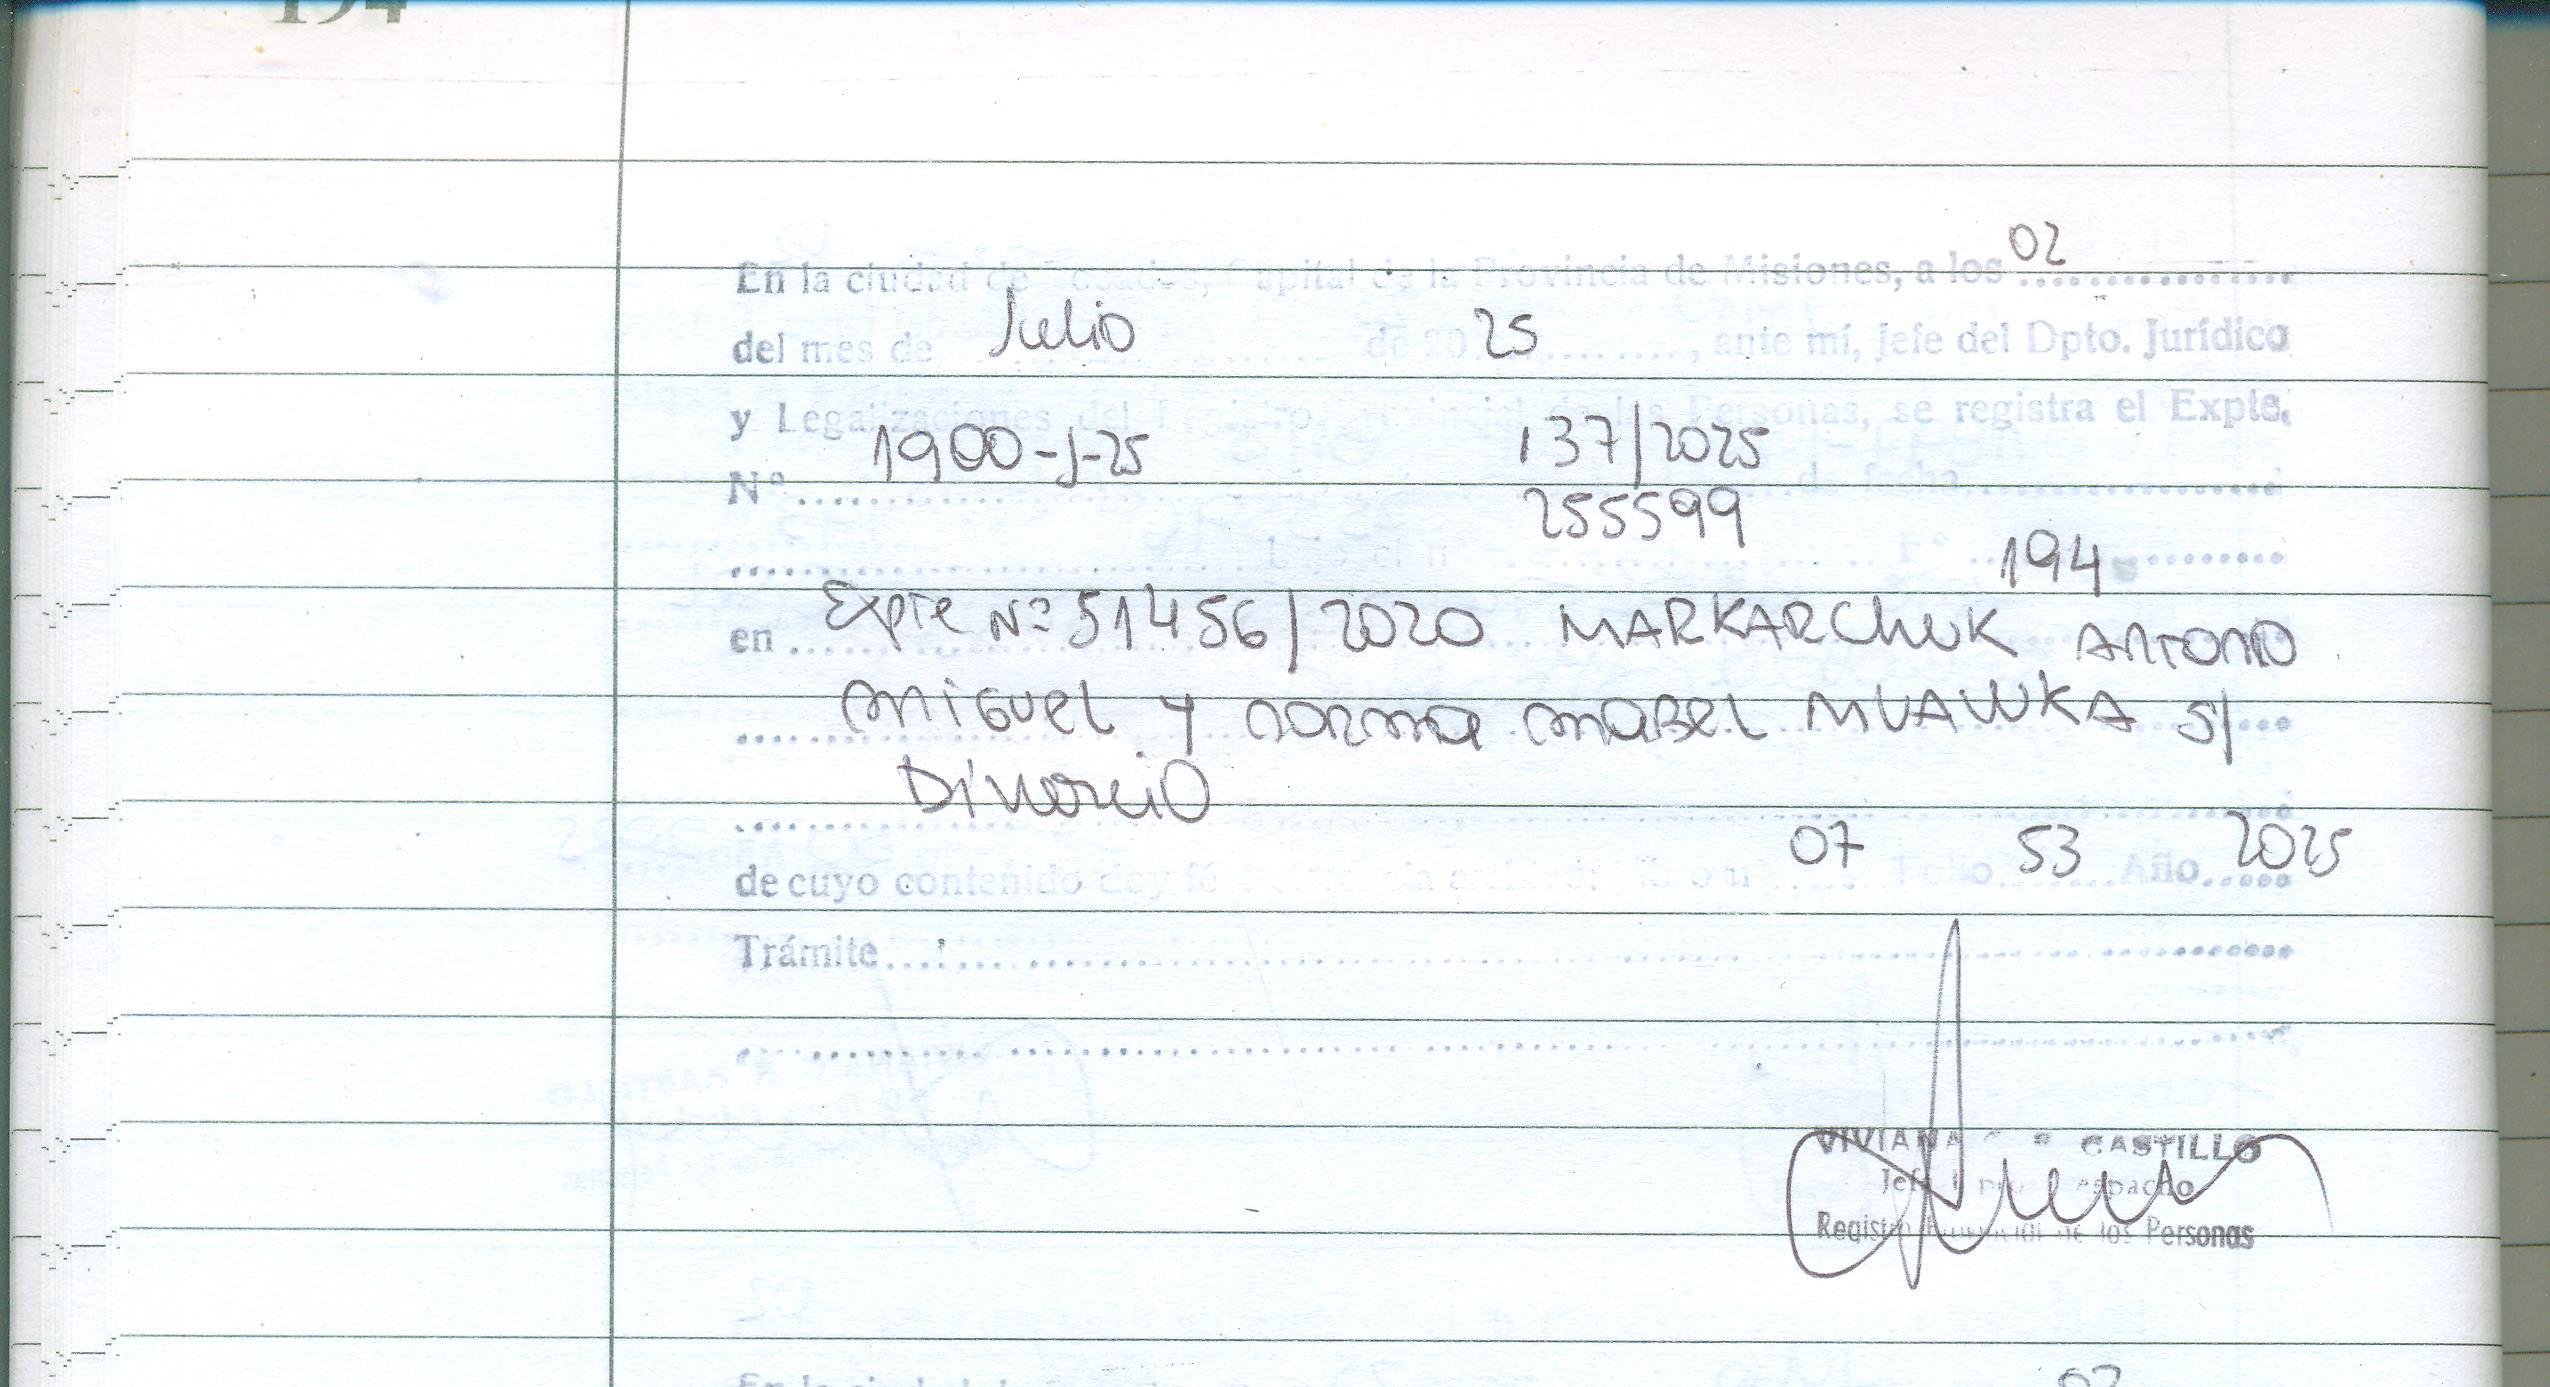 194
En la ciudad de Posadas, Capital de la Provincia de Misiones, a los 02
del mes de Julio de 20 25, ante mí, Jefe del Dpto. Jurídico
y Legalizaciones del Registro Provincial de las Personas, se registra el Expte.
Nº 1900-J-25 137/2025 de fecha
255599 194
en Expte Nº 51456/2020 MARKARCHUK ANTONIO
MIGUEL Y NORMA MABEL s/
DIVORCIO
de cuyo contenido doy fé 07 Folio 53 Año 2025
Trámite
VIVIANA CASTILLO
Jefe Despacho
Registro Provincial de los Personas
02